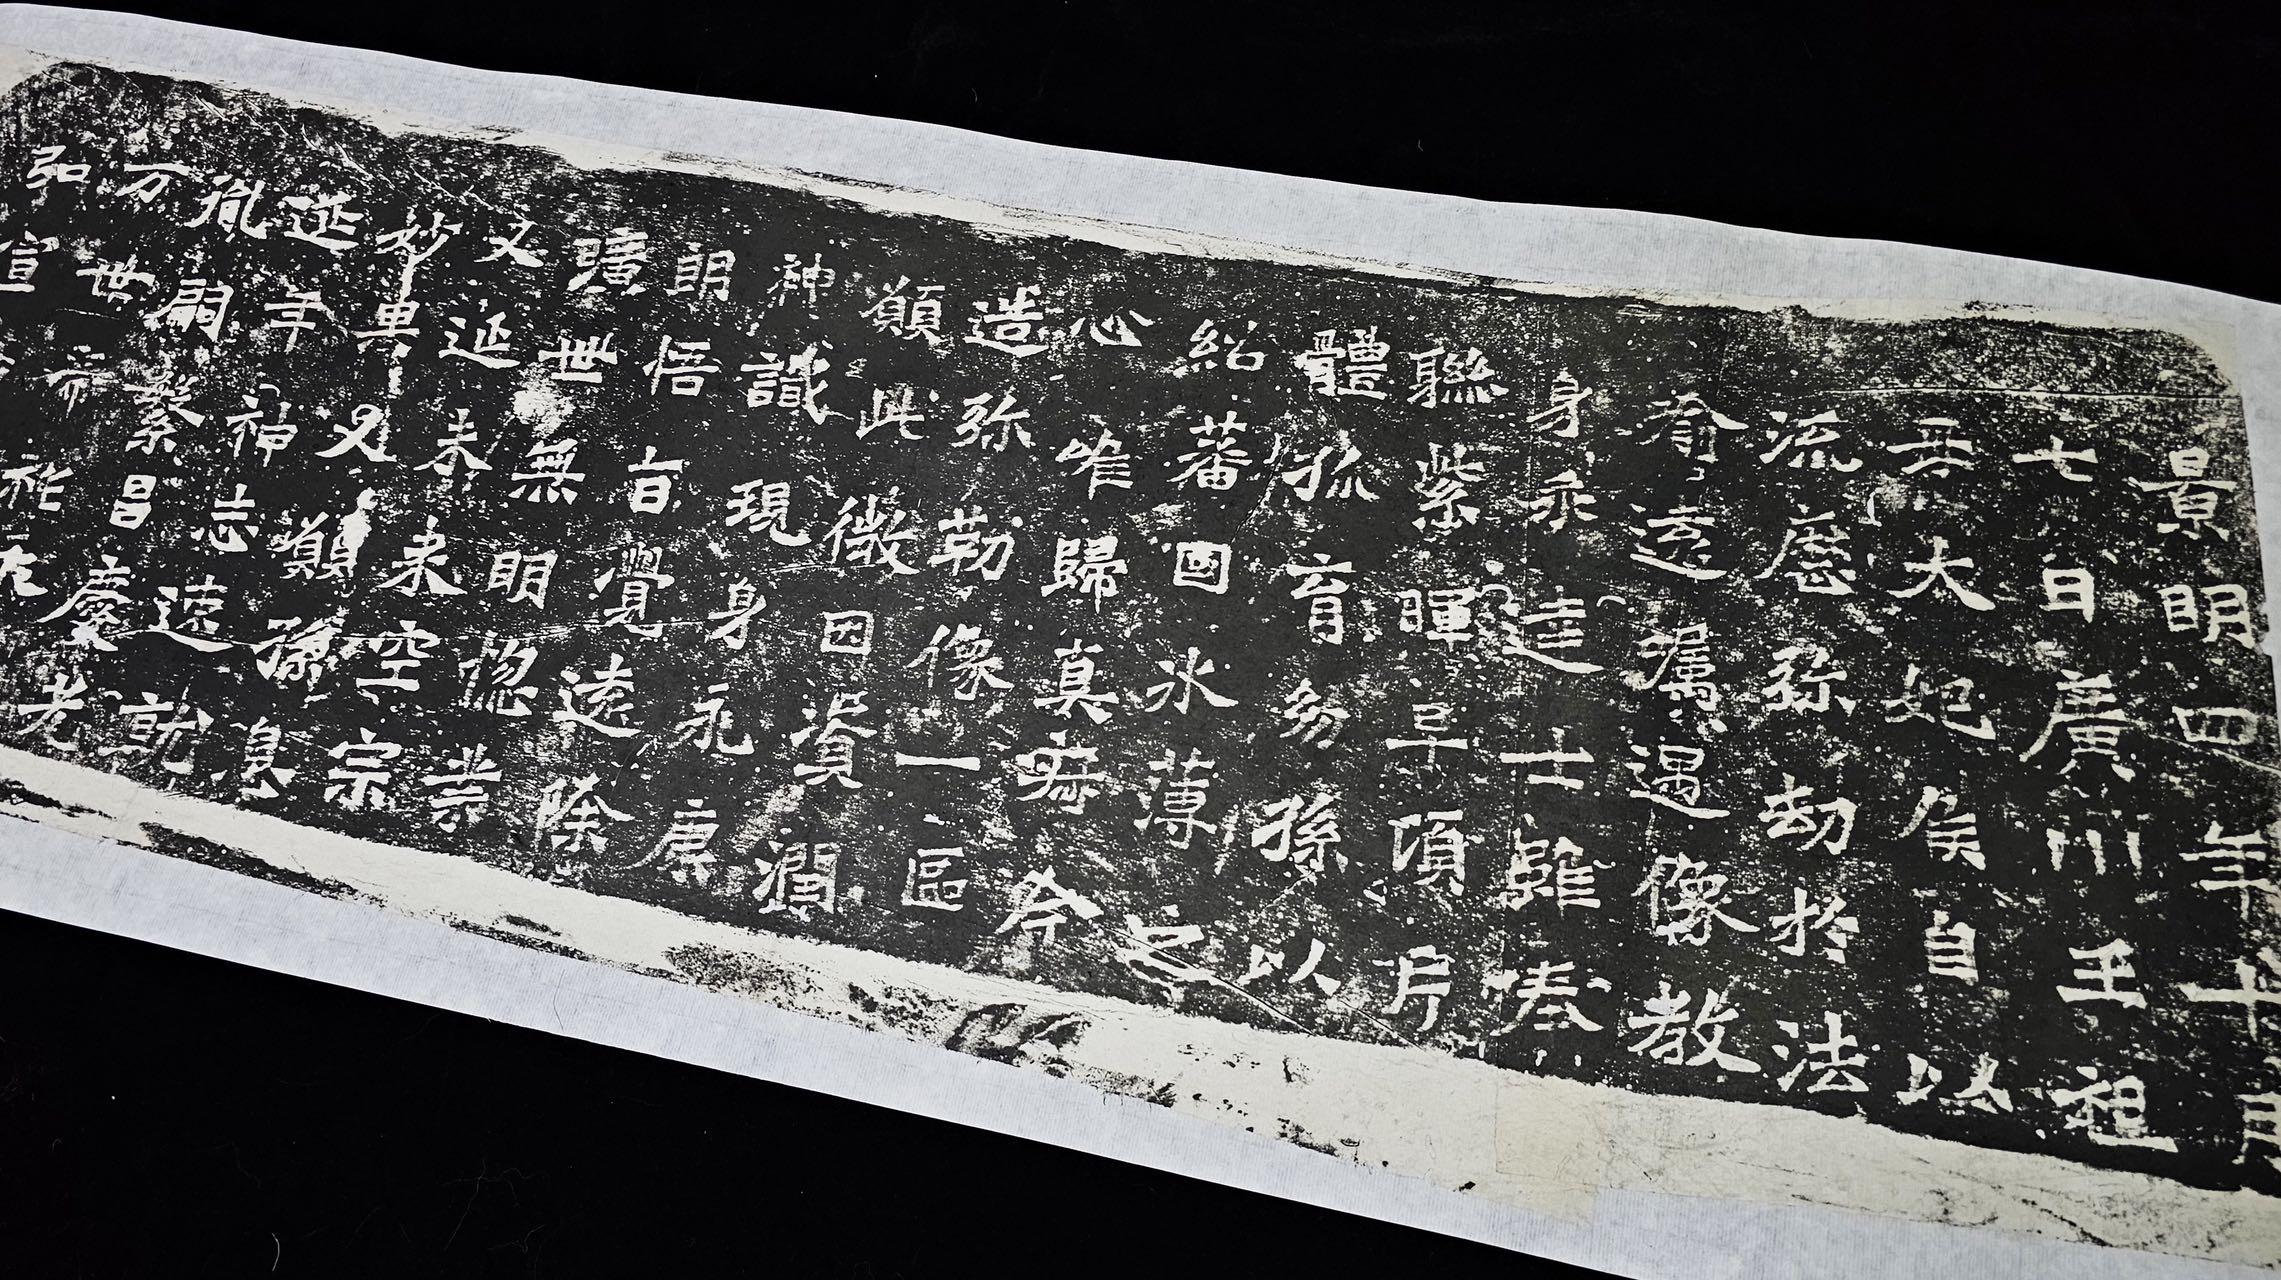 景明四年十月
七日廣川王祖
母太妃侯自以
流歷弥劫於法
喻遠囑遇像教
身乖達士雖奉
聯紫暉早頃片
體孤育幼孫以
紹蕃國冰薄之
心唯歸真寂今
造弥勒像一區
願此微因資潤
神識現身永康
朗悟旨覺遠除
曠世無明惚業
又延未來空宗
妙果又願孫息
延年神志速就
胤嗣繁昌慶光
万世帝祚永
弘宣